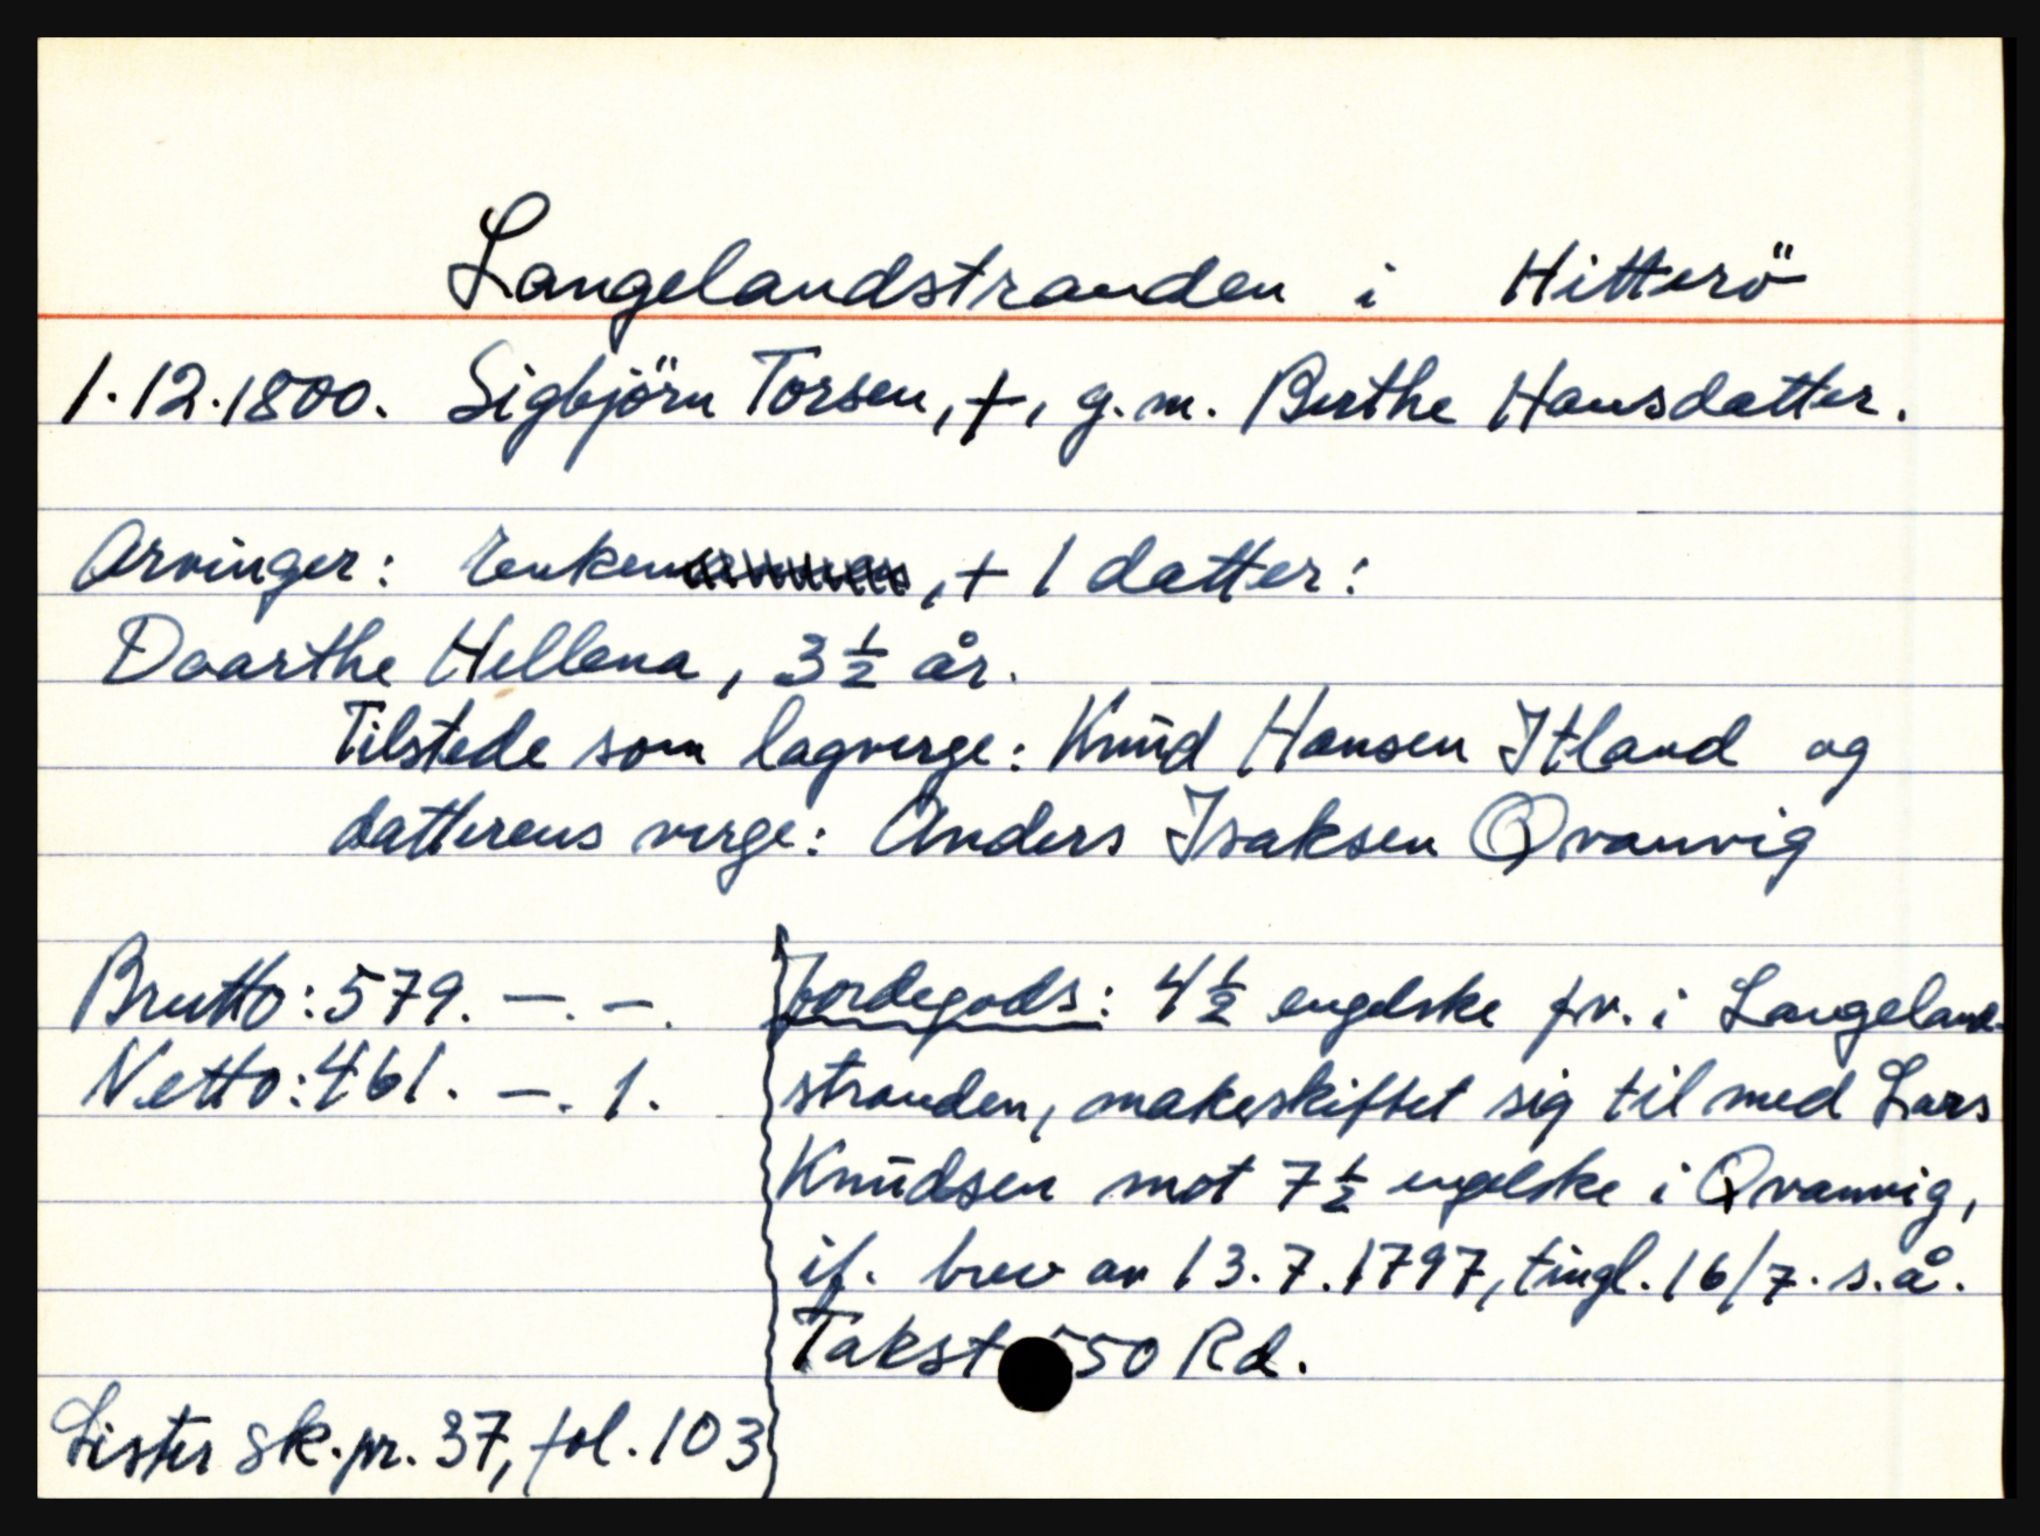 Langelandstranden i Hitterö
1.12.1800. Sigbjörn Torsen, +, g.m. Berthe Hansdatter.
Arvinger: Enken, + 1 datter:
Doarthe Hellena, 3 1/2 år.
Tilstede som lagverge: Knŭd Hansen Itland og
datterens verge: Anders Isaksen Qvanvig
Brutto: 579. –. –.
Netto: 461. –. 1.
Lister sk.pr. 37, fol. 103
Jordegods: 4 1/2 engelske pr. i Langeland-
stranden, makeskiftet sig til med Lars
Knŭdsen mot 7 1/2 engelske i Qvanvig,
if. brev av 13.7.1797, tingl. 16/7. s.å.
Takst 550 Rd.